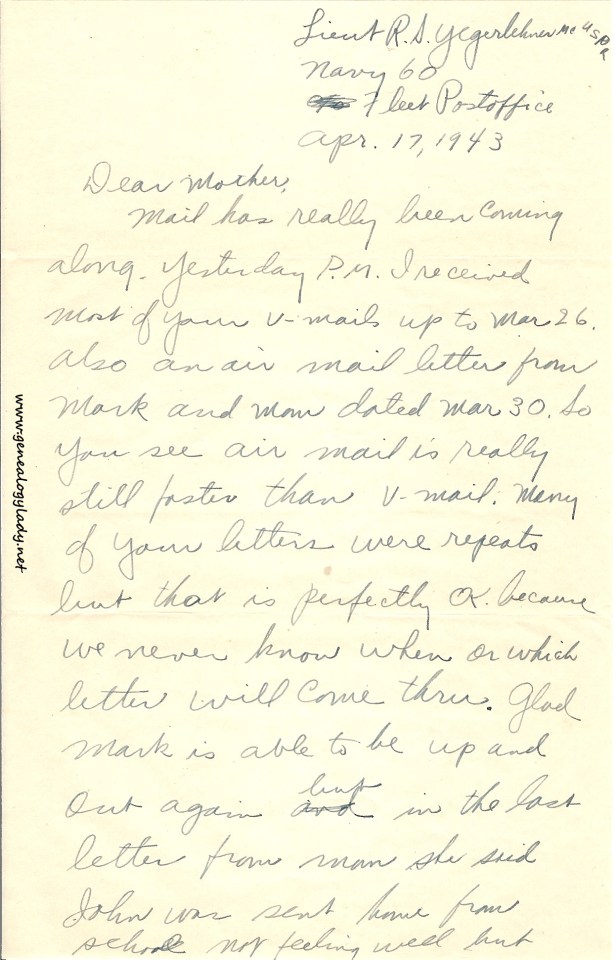 Lieut R.S. Yegerlehner MC USNR
Navy 60
Fleet Postoffice
Apr. 17, 1943
Dear Mother,
Mail has really been coming
along. Yesterday P.M. I received
most of your V-mails up to Mar 26.
Also an air mail letter from
Mark and Mom dated Mar 30. So
you see air mail is really
still faster than V-mail. Many
of your letters were repeats
but that is perfectly OK. because
we never know when or which
letter will come thru. Glad
Mark is able to be up and
out again and but in the last
letter from mom she said
John was sent home from
school not feeling well but
www.genealogylady.net